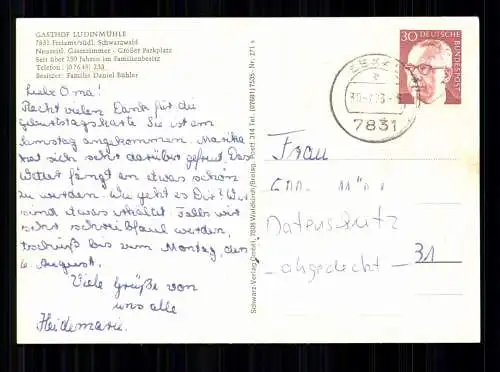 GASTHOF LUDINMÜHLE
7831 Freiamt/südl. Schwarzwald
Neuzeitl. Gästezimmer - Großer Parkplatz
Seit über 150 Jahren im Familienbesitz
Telefon: (07645) 233
Besitzer: Familie Daniel Bühler
Liebe Oma!
Recht vielen Dank für die
Geburtstagskarte Sie ist am
Samstag angekommen. Marika
hat sich sehr darüber gefreut. Das
Wetter fängt an etwas schön
zu werden. Wie geht es Dir? Wir
sind etwas erkältet. Falls wir
sehr schreibfaul werden,
tschüß bis zum Montag, den
6. August.
Viele Grüße von
uns alle
Heidemarie.
Schwarz-Verlag GmbH, 7808 Waldkirch/Breisg. Postf. 314 Tel. (07681) 7535 Nr. 271 s
30
DEUTSCHE
BUNDESPOST
7831
Frau
Datenschutz
- abgedeckt -
31